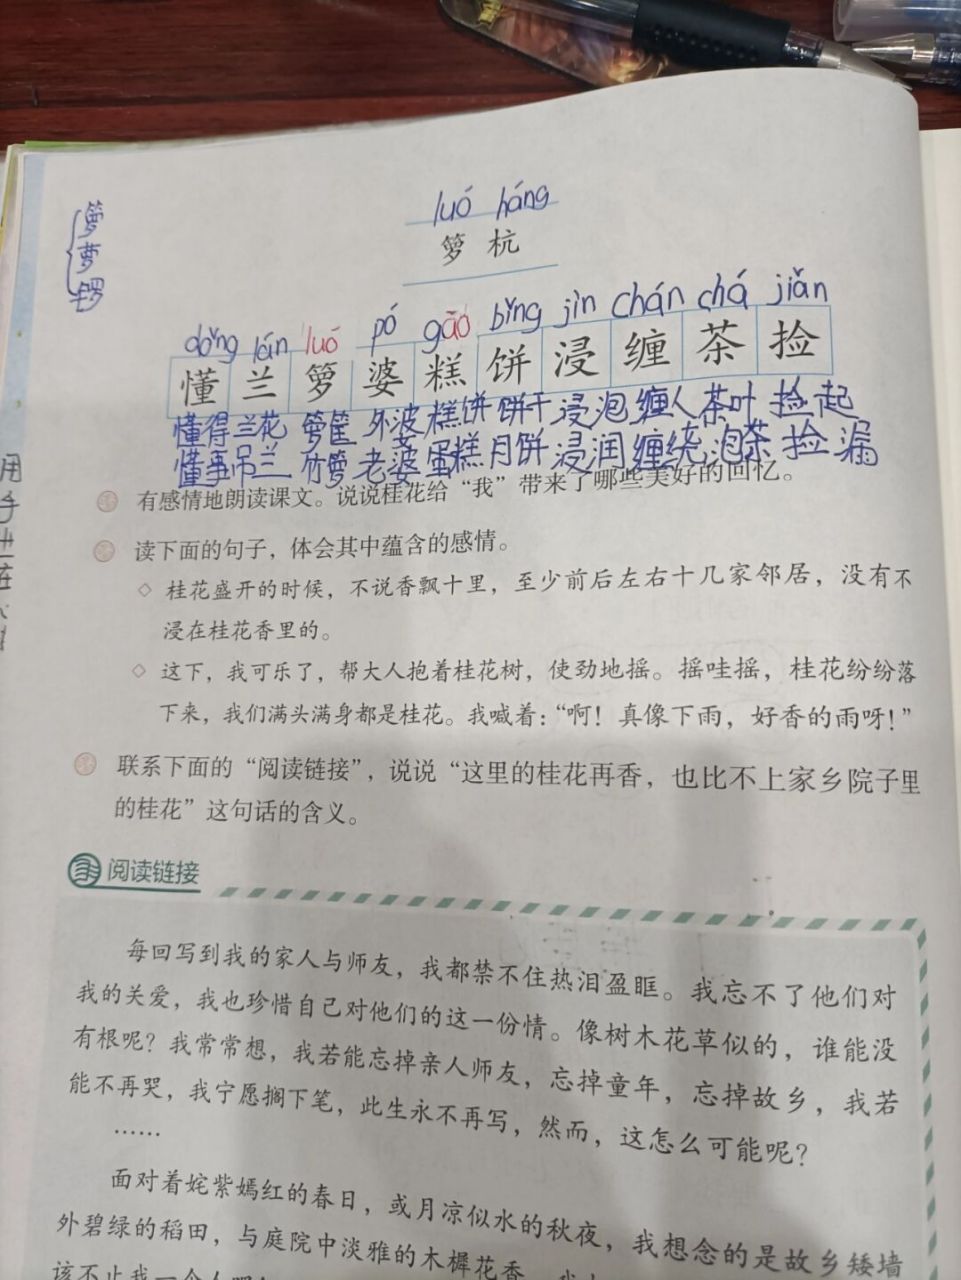 luó háng
箩 萝 锣
箩 杭
dǒng lán luó pó gāo bǐng jìn chán chá jiǎn
懂 兰 箩 婆 糕 饼 浸 缠 茶 捡
懂得 兰花 箩筐 外波 糕饼 饼干 浸泡 缠人 茶叶 捡起
懂事 吊兰 竹箩 老婆 蛋糕 月饼 浸润 缠绕 泡茶 捡漏
有感情地朗读课文。说说桂花给“我”带来了哪些美好的回忆。
读下面的句子，体会其中蕴含的感情。
◇ 桂花盛开的时候，不说香飘十里，至少前后左右十几家邻居，没有不
浸在桂花香里的。
◇ 这下，我可乐了，帮大人抱着桂花树，使劲地摇。摇哇摇，桂花纷纷落
下来，我们满头满身都是桂花。我喊着：“啊！真像下雨，好香的雨呀！”
联系下面的“阅读链接”，说说“这里的桂花再香，也比不上家乡院子里
的桂花”这句话的含义。
阅读链接
每回写到我的家人与师友，我都禁不住热泪盈眶。我忘不了他们对
我的关爱，我也珍惜自己对他们的这一份情。像树木花草似的，谁能没
有根呢？我常常想，我若能忘掉亲人师友，忘掉童年，忘掉故乡，我若
能不再哭，我宁愿搁下笔，此生永不再写，然而，这怎么可能呢？
……
面对着姹紫嫣红的春日，或月凉似水的秋夜，我想念的是故乡矮墙
外碧绿的稻田，与庭院中淡雅的木樨花香
该不止我一个人吧